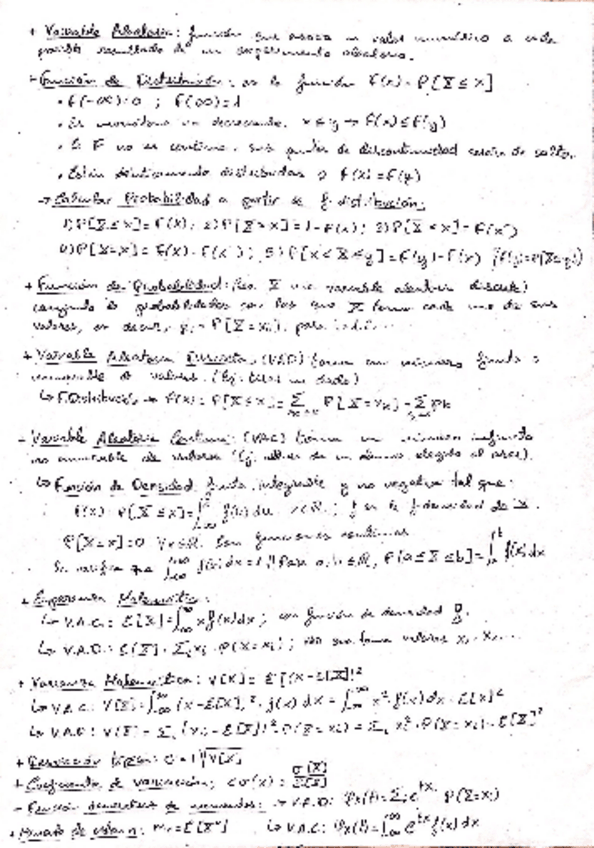 + Variable Aleatoria: función que asocia un valor numérico a cada
posible resultado de un experimento aleatorio.
+ Función de Distribución: es la función F(x) = P[X ≤ x]
• F(-∞)=0 ; F(∞)=1
• Es monótona no decreciente. x ≤ y → F(x) ≤ F(y)
• Si F no es continua, sus puntos de discontinuidad son de salto.
• Están idénticamente distribuidas si F(x) = F(y)
→ Calcular Probabilidad a partir de f. distribución:
1) P[X ≤ x] = F(x); 2) P[X > x] = 1 - F(x); 3) P[X < x] = F(x⁻)
4) P[X = x] = F(x) - F(x⁻); 5) P[x < X ≤ y] = F(y) - F(x)
+ Función de Probabilidad: (sea X una variable aleatoria discreta)
conjunto de probabilidades con las que X toma cada uno de sus
valores, es decir, pᵢ = P[X = xᵢ], para i=1,2,...
+ Variable Aleatoria Discreta: (VAD) toma un número finito o
numerable de valores. (Ej: tirar un dado)
↳ F. Distribución → F(x) = P[X ≤ x] = Σ P[X = xₖ] = Σ pₖ
- Variable Aleatoria Continua: (VAC) toma un número infinito
no numerable de valores (Ej: de un elegido al azar).
↳ Función de Densidad: función integrable y no negativa tal que:
F(x) = P[X ≤ x] = ∫ f(u) du, x∈ℝ; f es la f. densidad de X.
P[X = x] = 0 ∀x∈ℝ. Son funciones continuas
Se verifica que ∫ f(x) dx = 1 // Para a, b ∈ ℝ, P[a ≤ X ≤ b] = ∫ₐᵇ f(x) dx
+ Esperanza Matemática:
↳ V.A.C.: E[X] = ∫ x f(x) dx; con función de densidad
↳ V.A.D.: E[X] = Σᵢ xᵢ · P(X = xᵢ); que toma valores x₁, x₂, ...
+ Varianza Matemática: V[X] = E[(X - E[X])²]
↳ V.A.C: V[X] = ∫ (x - E[X])² · f(x) dx = ∫ x² · f(x) dx - E[X]²
↳ V.A.D: V[X] = Σᵢ (xᵢ - E[X])² · P(X = xᵢ) = Σᵢ xᵢ² · P(X = xᵢ) - E[X]²
+ Desviación típica: σ = +√V[X]
+ Coeficiente de variación: CV(x) = σ[X]/E[X]
- Función generatriz de momentos: → V.A.D: Ψₓ(t) = Σᵢ e^{tx} P(X = xᵢ)
+ Momento de orden n: mₙ = E[Xⁿ] ↳ V.A.C: Ψₓ(t) = ∫ e^{tx} f(x) dx